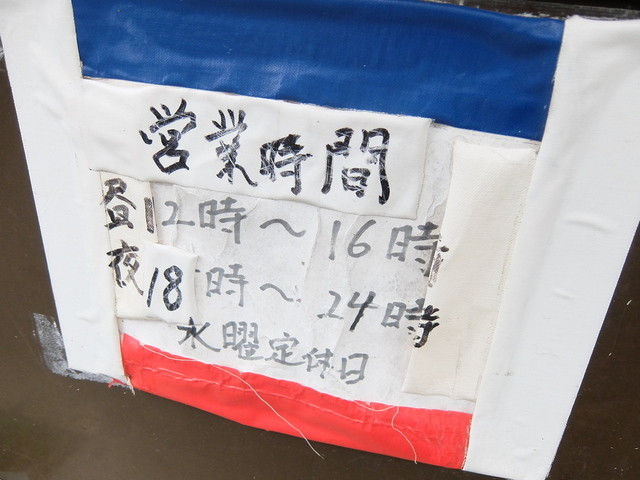 営業時間
昼12時～16時
夜18時～24時
水曜定休日